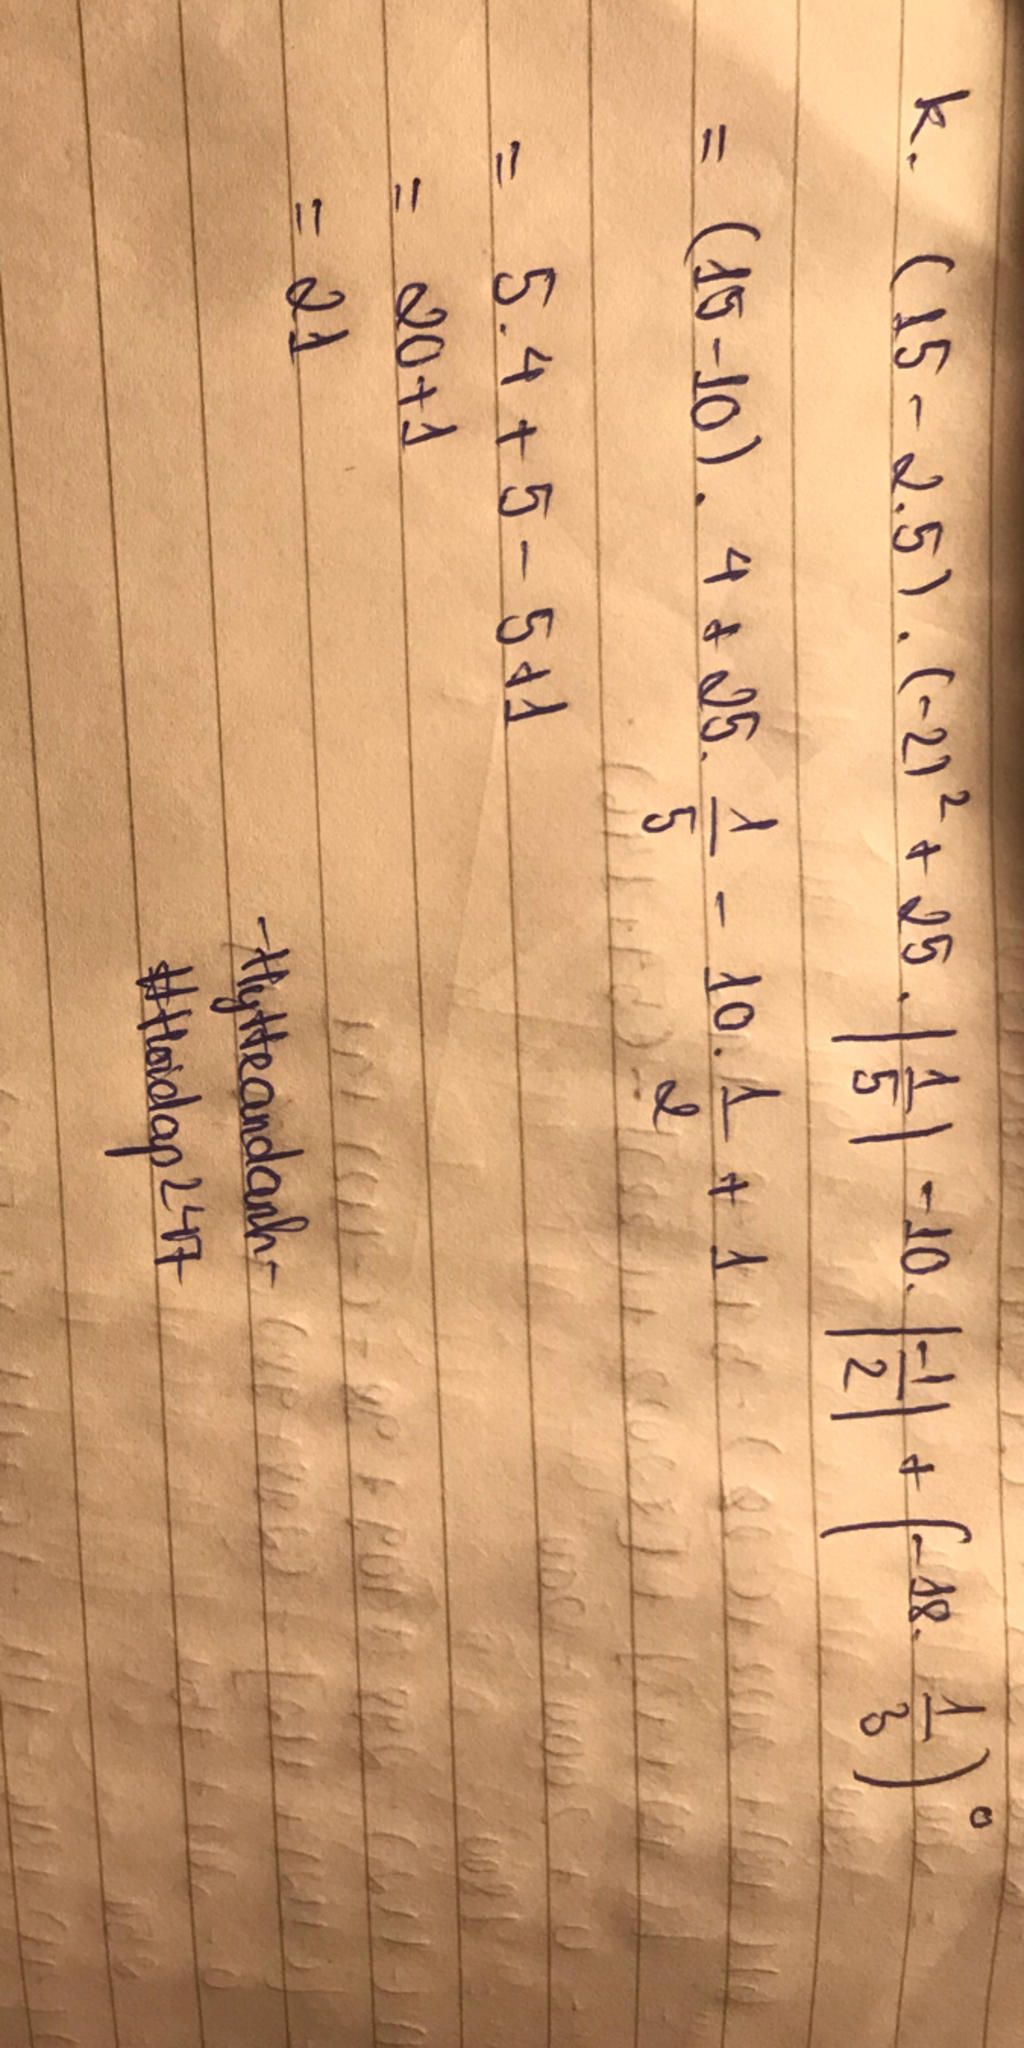 k. (15 - 2.5) . (-2)² + 25 . |1/5| - 10. |-1/2| + (-18. 1/3)⁰
= (15 - 10) . 4 + 25. 1/5 - 10. 1/2 + 1
= 5.4 + 5 - 5 + 1
= 20 + 1
= 21
#Hoidap247